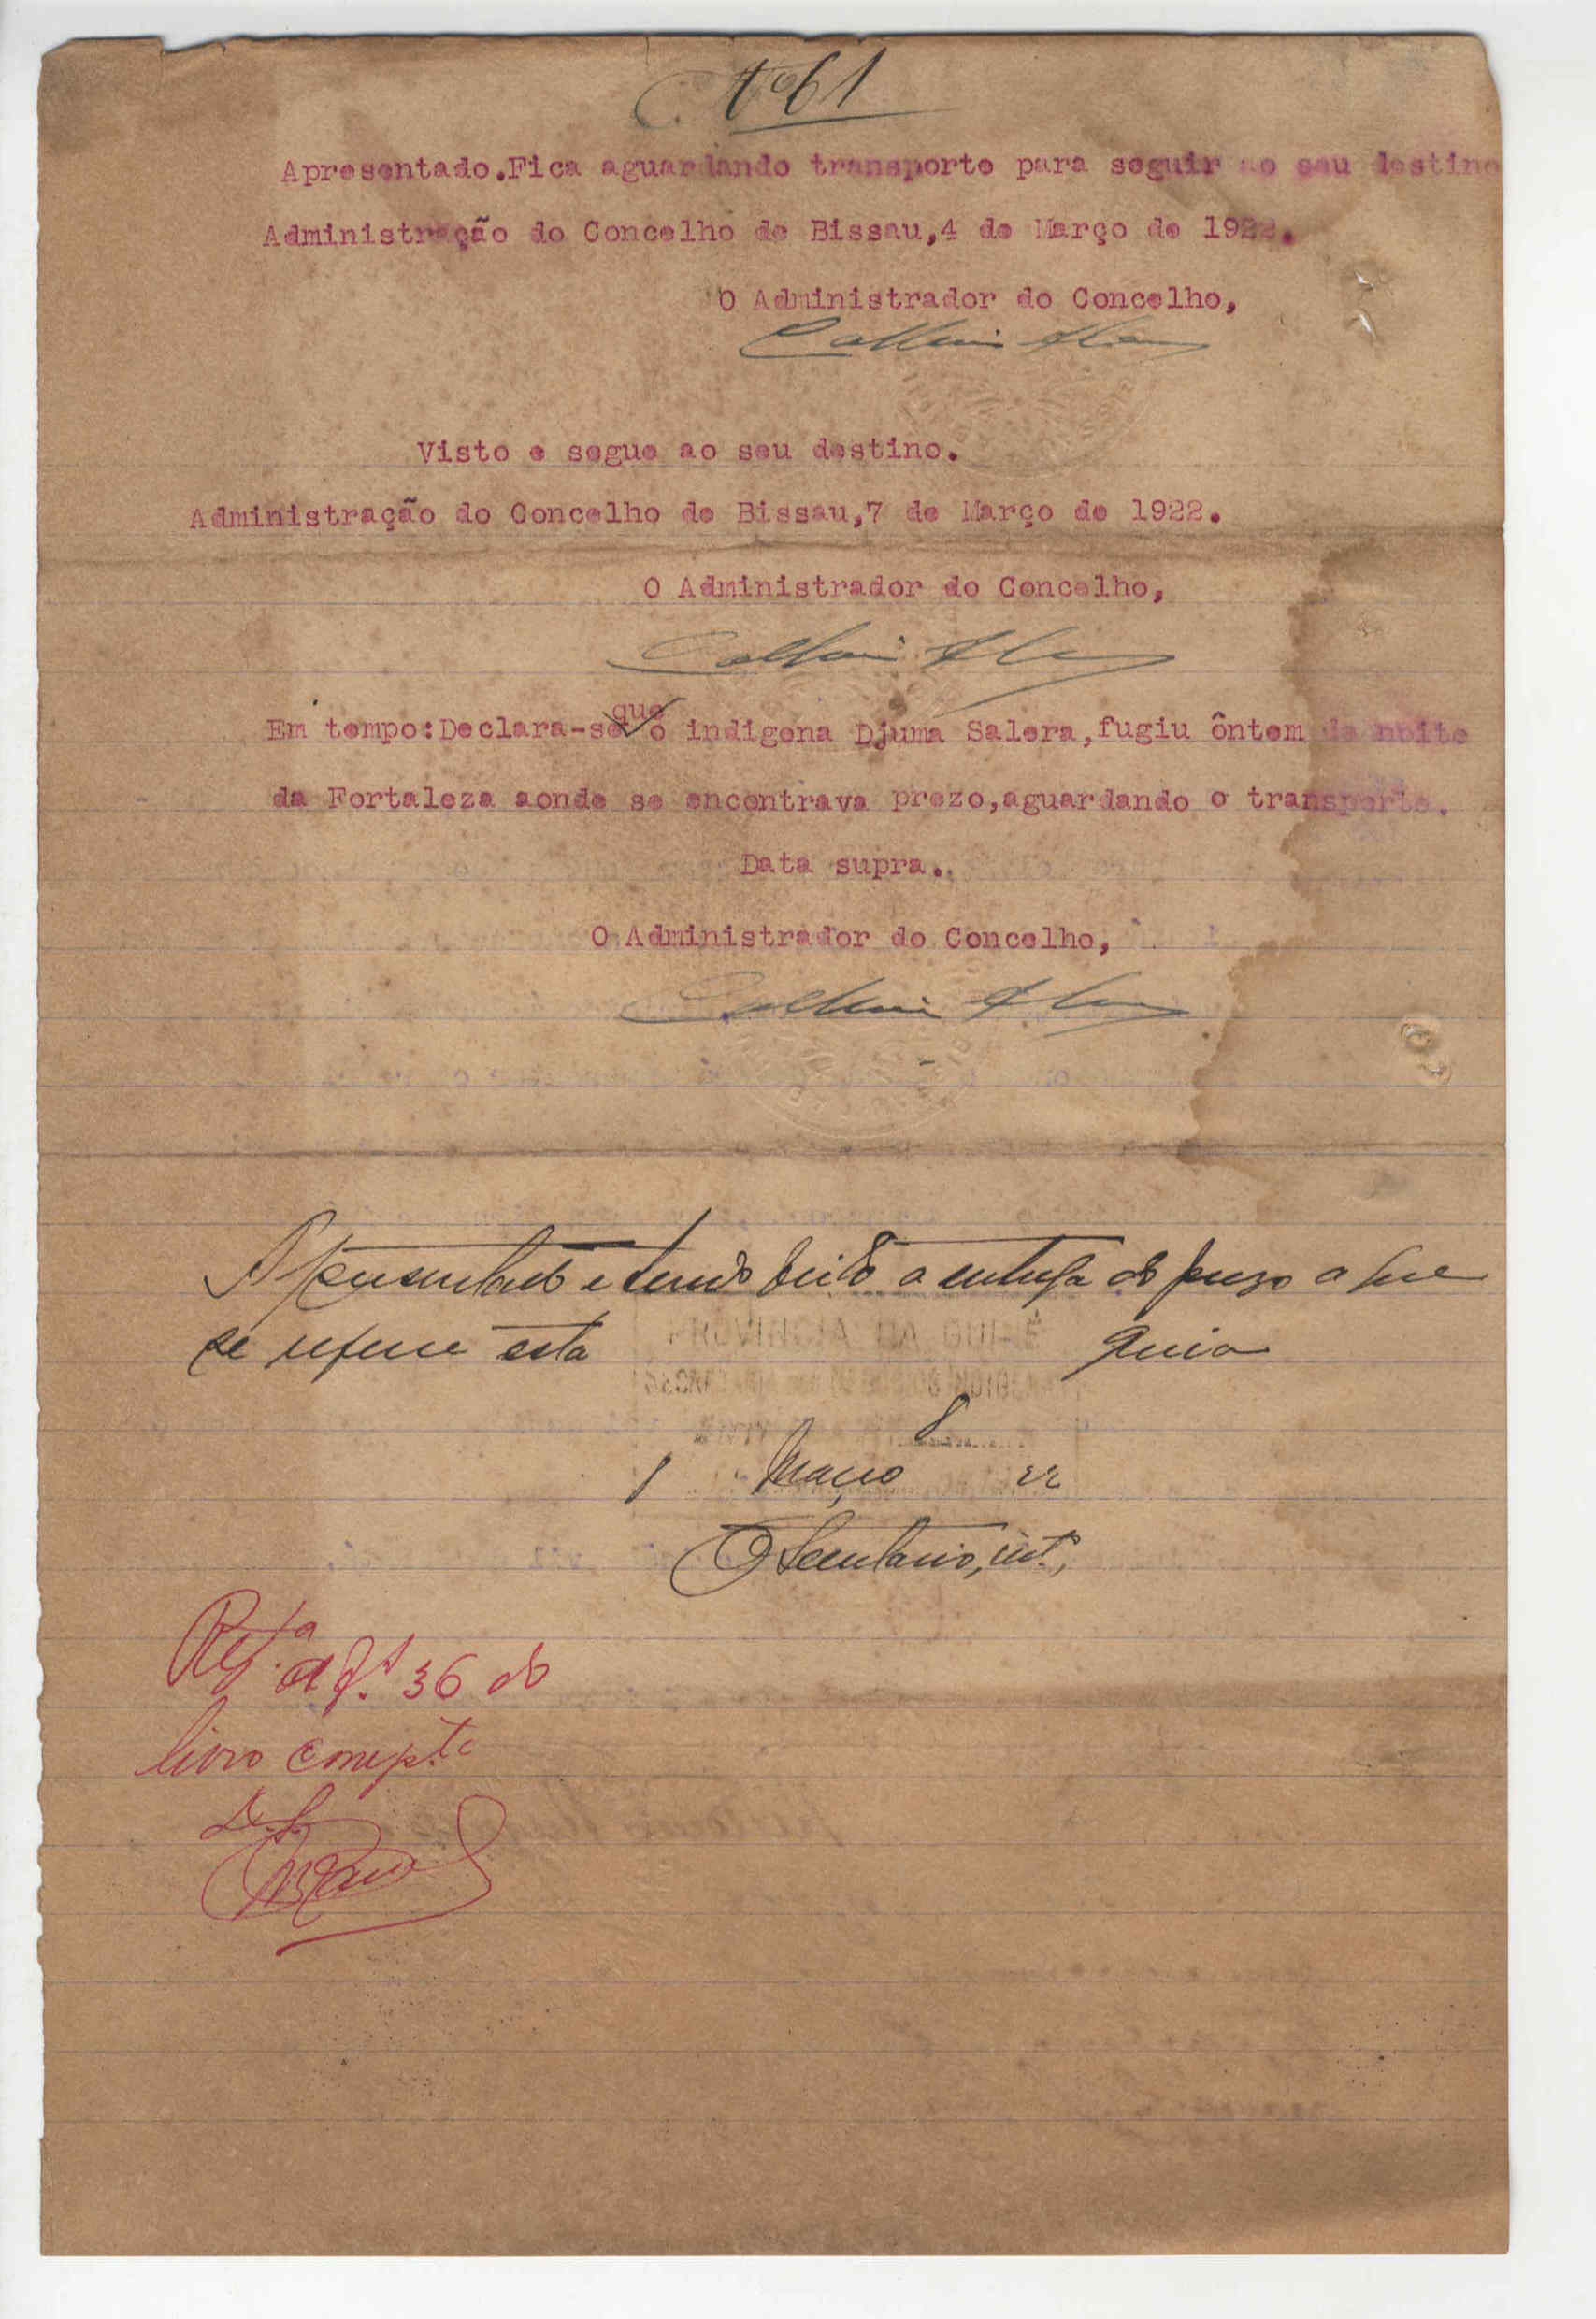 Nº 61
Apresentado.Fica aguardando transporte para seguir ao seu destino
Administração do Concelho de Bissau,4 de Março de 1922.
O Administrador do Concelho,
Visto e segue ao seu destino.
Administração do Concelho de Bissau,7 de Março de 1922.
O Administrador do Concelho,
que
Em tempo:Declara-se o indigena Djuma Salera,fugiu ôntem de noite
da Fortaleza aonde se encontrava prezo,aguardando o transporte.
Data supra.
O Administrador do Concelho,
Apresentado e tendo feito a entrega do prezo a que
se refere esta guia
8
Março 22
O Secretario, int.,
Reg.ta a fl.s 36 do
livro comp.te